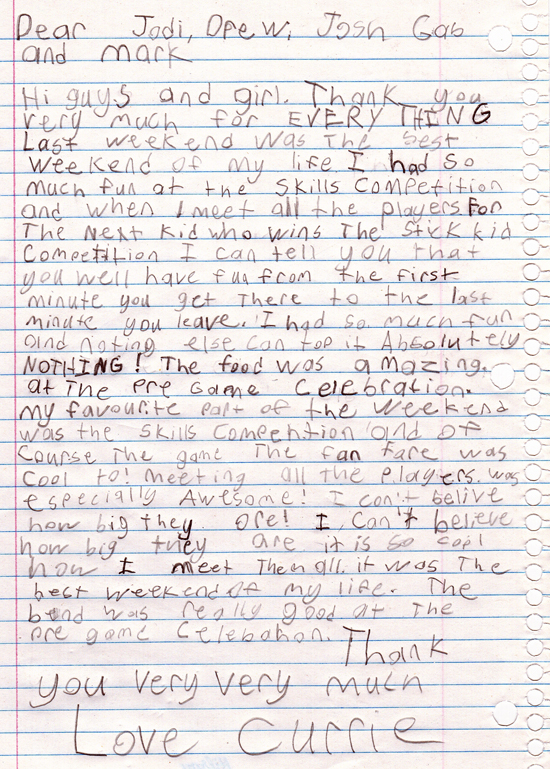 Dear Jodi, Drew, Josh Gab
and mark
Hi guys and girl. Thank you
very much for EVERYTHING
Last weekend was The best
weekend of my life I had so
much fun at the Skills Competition
and when I meet all the players For
The Next kid who wins The Stick kid
Competition I can tell you that
you well have fun from the first
minute you get There to the last
minute you leave. I had so much fun
and noting else can top it Absolutely
NOTHING! The food was amazing.
at The Pre Game Celebration.
my favourite part of the weekend
was the Skills Compention and of
Course The game The fan fare was
Cool to! meeting all the players was
especially Awesome! I can't belive
how big they are! I Can't believe
how big they are it is so cool
how I meet Them all. it was The
best weekend of my life. The
band was really good at The
Pre game Celebahon.
Thank
you very very much
Love Currie